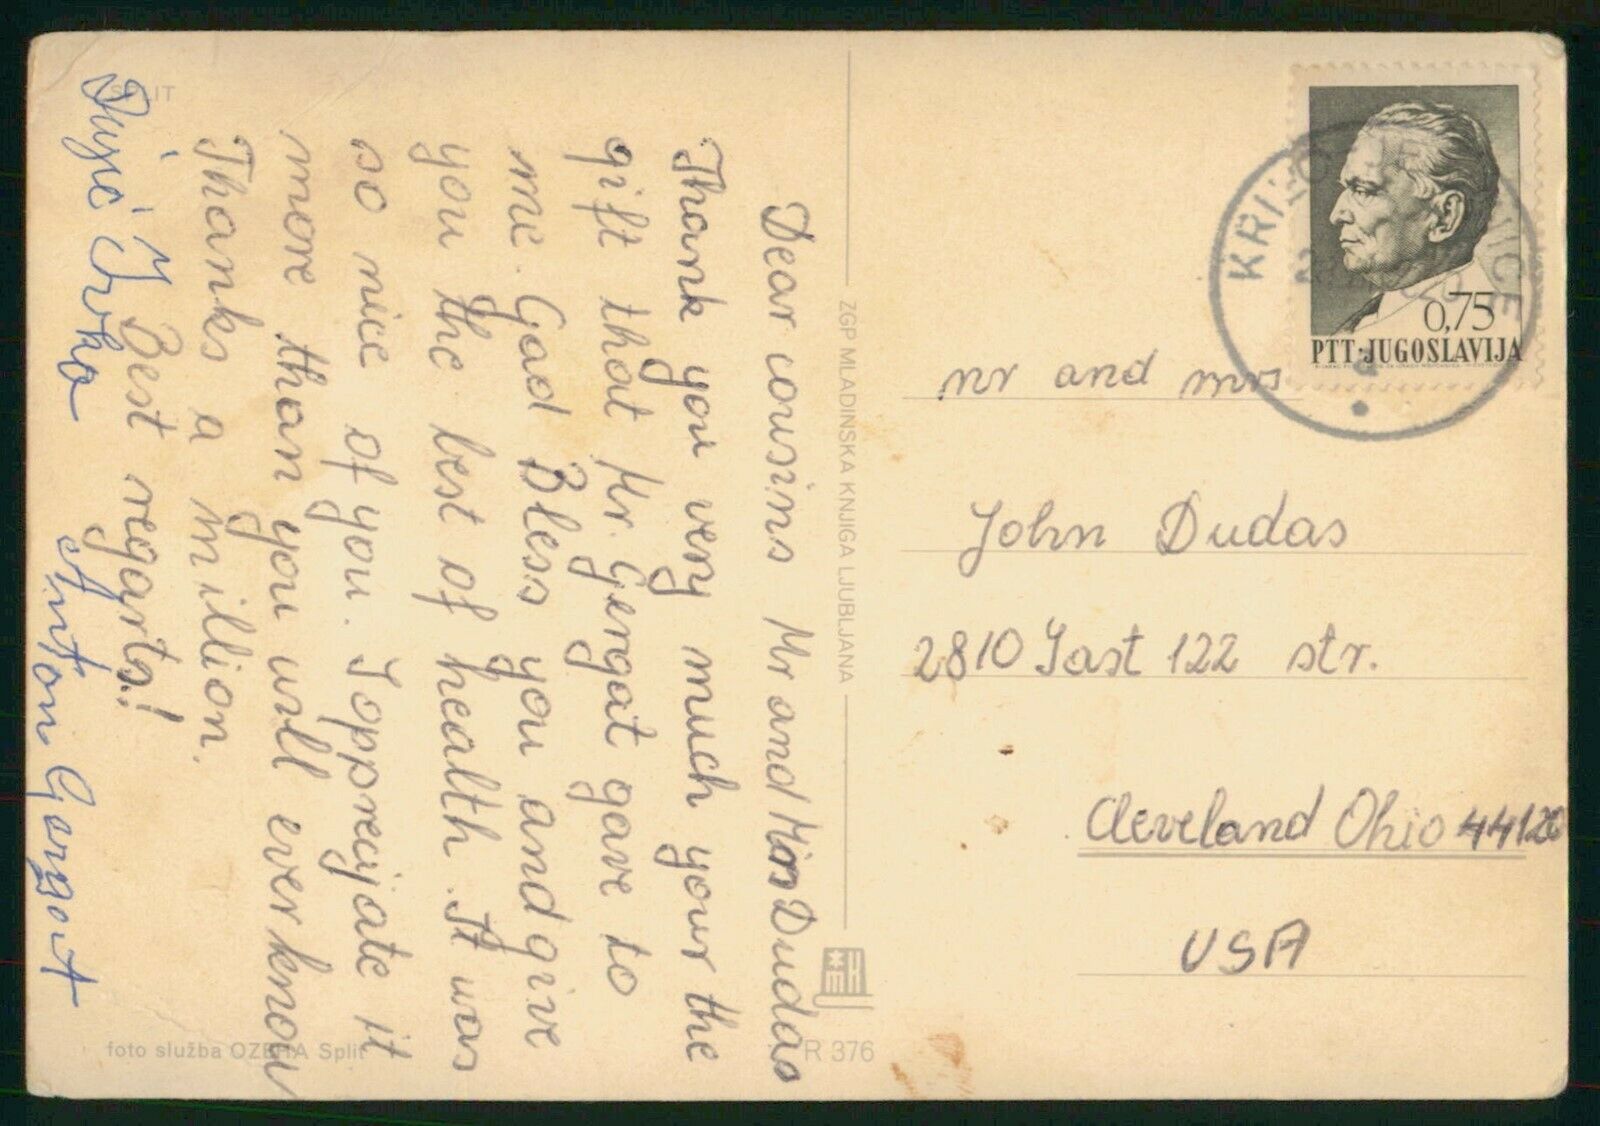 SPLIT
Dear cousins Mr and Mrs Dudas
Thank you very much your the
gift that Mr. Gergat gave to
me. God Bless you and give
you the best of health. It was
so nice of you. I opprecijate it
more than you will ever know
Thanks a million.
Best regarts!
Ivka
Anton Gorgat
foto služba OZEHA Split
ZGP MLADINSKA KNJIGA LJUBLJANA
R 376
0,75
PTT·JUGOSLAVIJA
mr and mrs
John Dudas
2810 East 122 str.
Cleveland Ohio 44120
USA